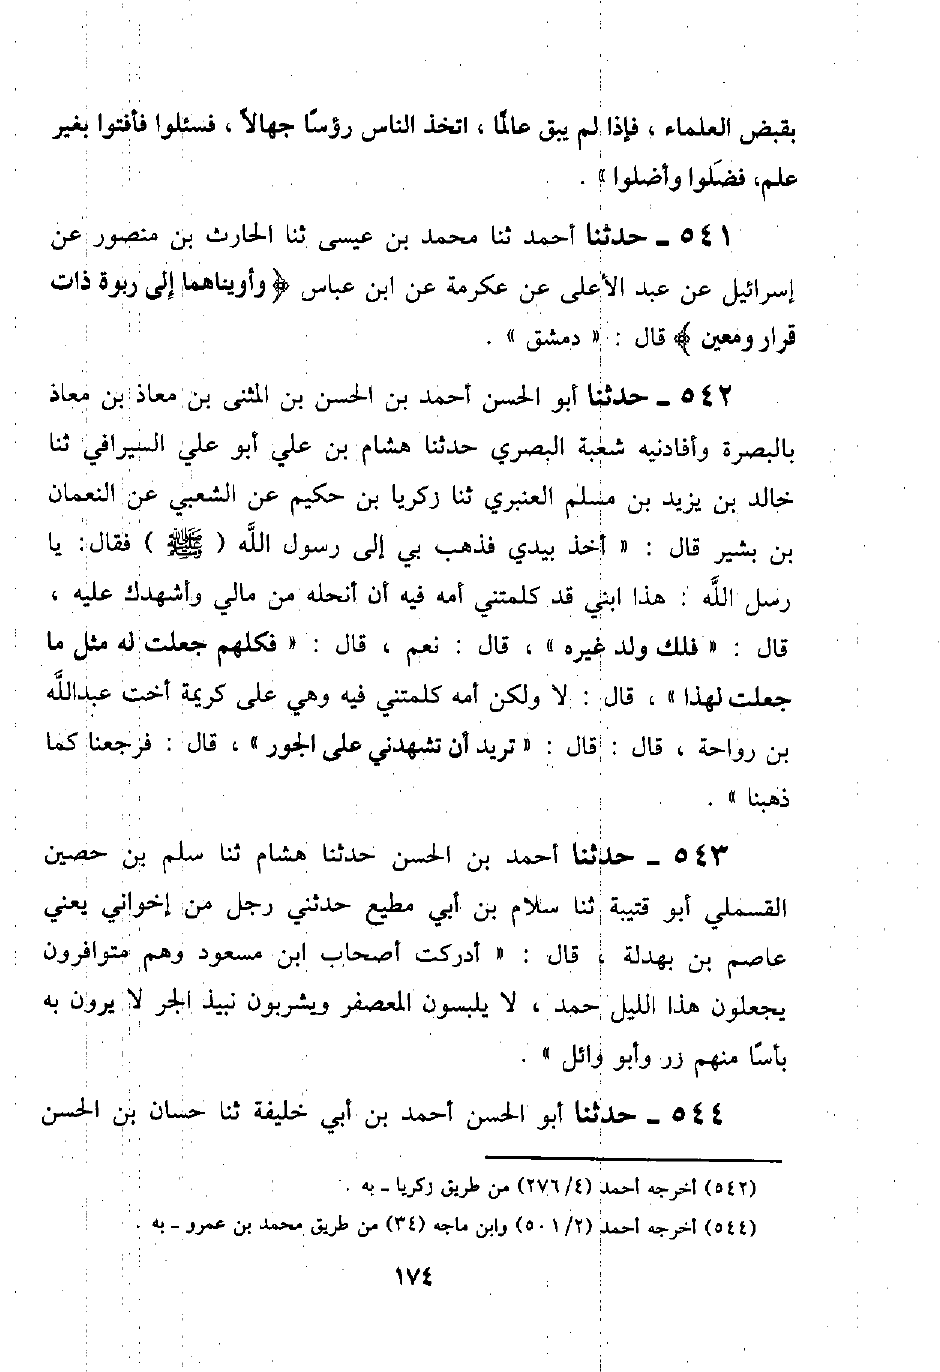 بقبض العلماء ، فإذا لم يبق عالمًا ، اتخذ الناس رؤسًا جهالاً ، فسئلوا فأفتوا بغير
علم، فضَلوا وأضلوا » .
٥٤١ ـ حدثنا أحمد ثنا محمد بن عيسى ثنا الحارث بن منصور عن
إسرائيل عن عبد الأعلى عن عكرمة عن ابن عباس ﴿ وأويناهما إلى ربوة ذات
قرار ومعين ﴾ قال : « دمشق » .
٥٤٢ ـ حدثنا أبو الحسن أحمد بن الحسن بن المثنى بن معاذ بن معاذ
بالبصرة وأفادنيه شعبة البصري حدثنا هشام بن علي أبو علي السيرافي ثنا
خالد بن يزيد بن مسلم العنبري ثنا زكريا بن حكيم عن الشعبي عن النعمان
بن بشير قال : « أخذ بيدي فذهب بي إلى رسول اللَّه ( ﷺ ) فقال: يا
رسل اللَّه : هذا ابني قد كلمتني أمه فيه أن أنحله من مالي وأشهدك عليه ،
قال : « فلك ولد غيره » ، قال : نعم ، قال : « فكلهم جعلت له مثل ما
جعلت لهذا » ، قال : لا ولكن أمه كلمتني فيه وهي على كريمة أخت عبداللَّه
بن رواحة ، قال : قال : « تريد أن تشهدني على الجور » ، قال : فرجعنا كما
ذهبنا » .
٥٤٣ ـ حدثنا أحمد بن الحسن حدثنا هشام ثنا سلم بن حصين
القسملي أبو قتيبة ثنا سلام بن أبي مطيع حدثني رجل من إخواني يعني
عاصم بن بهدلة ، قال : « أدركت أصحاب ابن مسعود وهم متوافرون
يجعلون هذا الليل حمد ، لا يلبسون المعصفر ويشربون نبيذ الجر لا يرون به
بأسًا منهم زر وأبو وائل » .
٥٤٤ ـ حدثنا أبو الحسن أحمد بن أبي خليفة ثنا حسان بن الحسن
(٥٤٢) أخرجه أحمد (٢٧٦/٤) من طريق زكريا ـ به .
(٥٤٤) أخرجه أحمد (٥٠١/٢) وابن ماجه (٣٤) من طريق محمد بن عمرو ـ به .
١٧٤